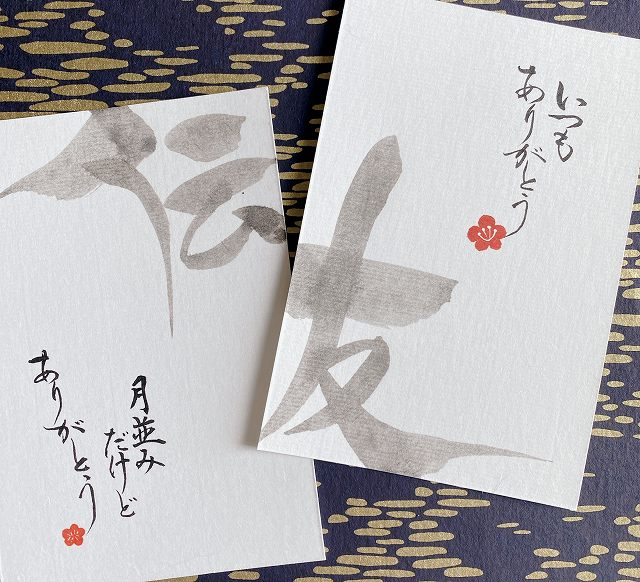 伝
月並み
だけど
ありがとう
友
いつも
ありがとう